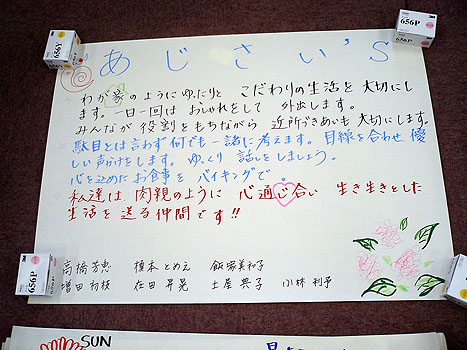 656P
656P
あじさい's
わが家のようにゆったりと こだわりの生活を大切にし
ます。一日一回は おしゃれをして 外出します。
みんなが 役割をもちながら 近所づきあいも大切にします。
駄目とは言わず何でも一諸に考えます。目線を合わせ、優
しい声かけをします。ゆっくり 話しをしましょう。
心を込めた お食事を バイキングで。
私達は、肉親のように 心通じ合い 生き生きとした
生活を送る仲間です!!
高橋芳恵 榎本とめえ 飯塚美和子
増田初枝 在田昇晃 土屋典子 小林利予
656P
656P
SUN